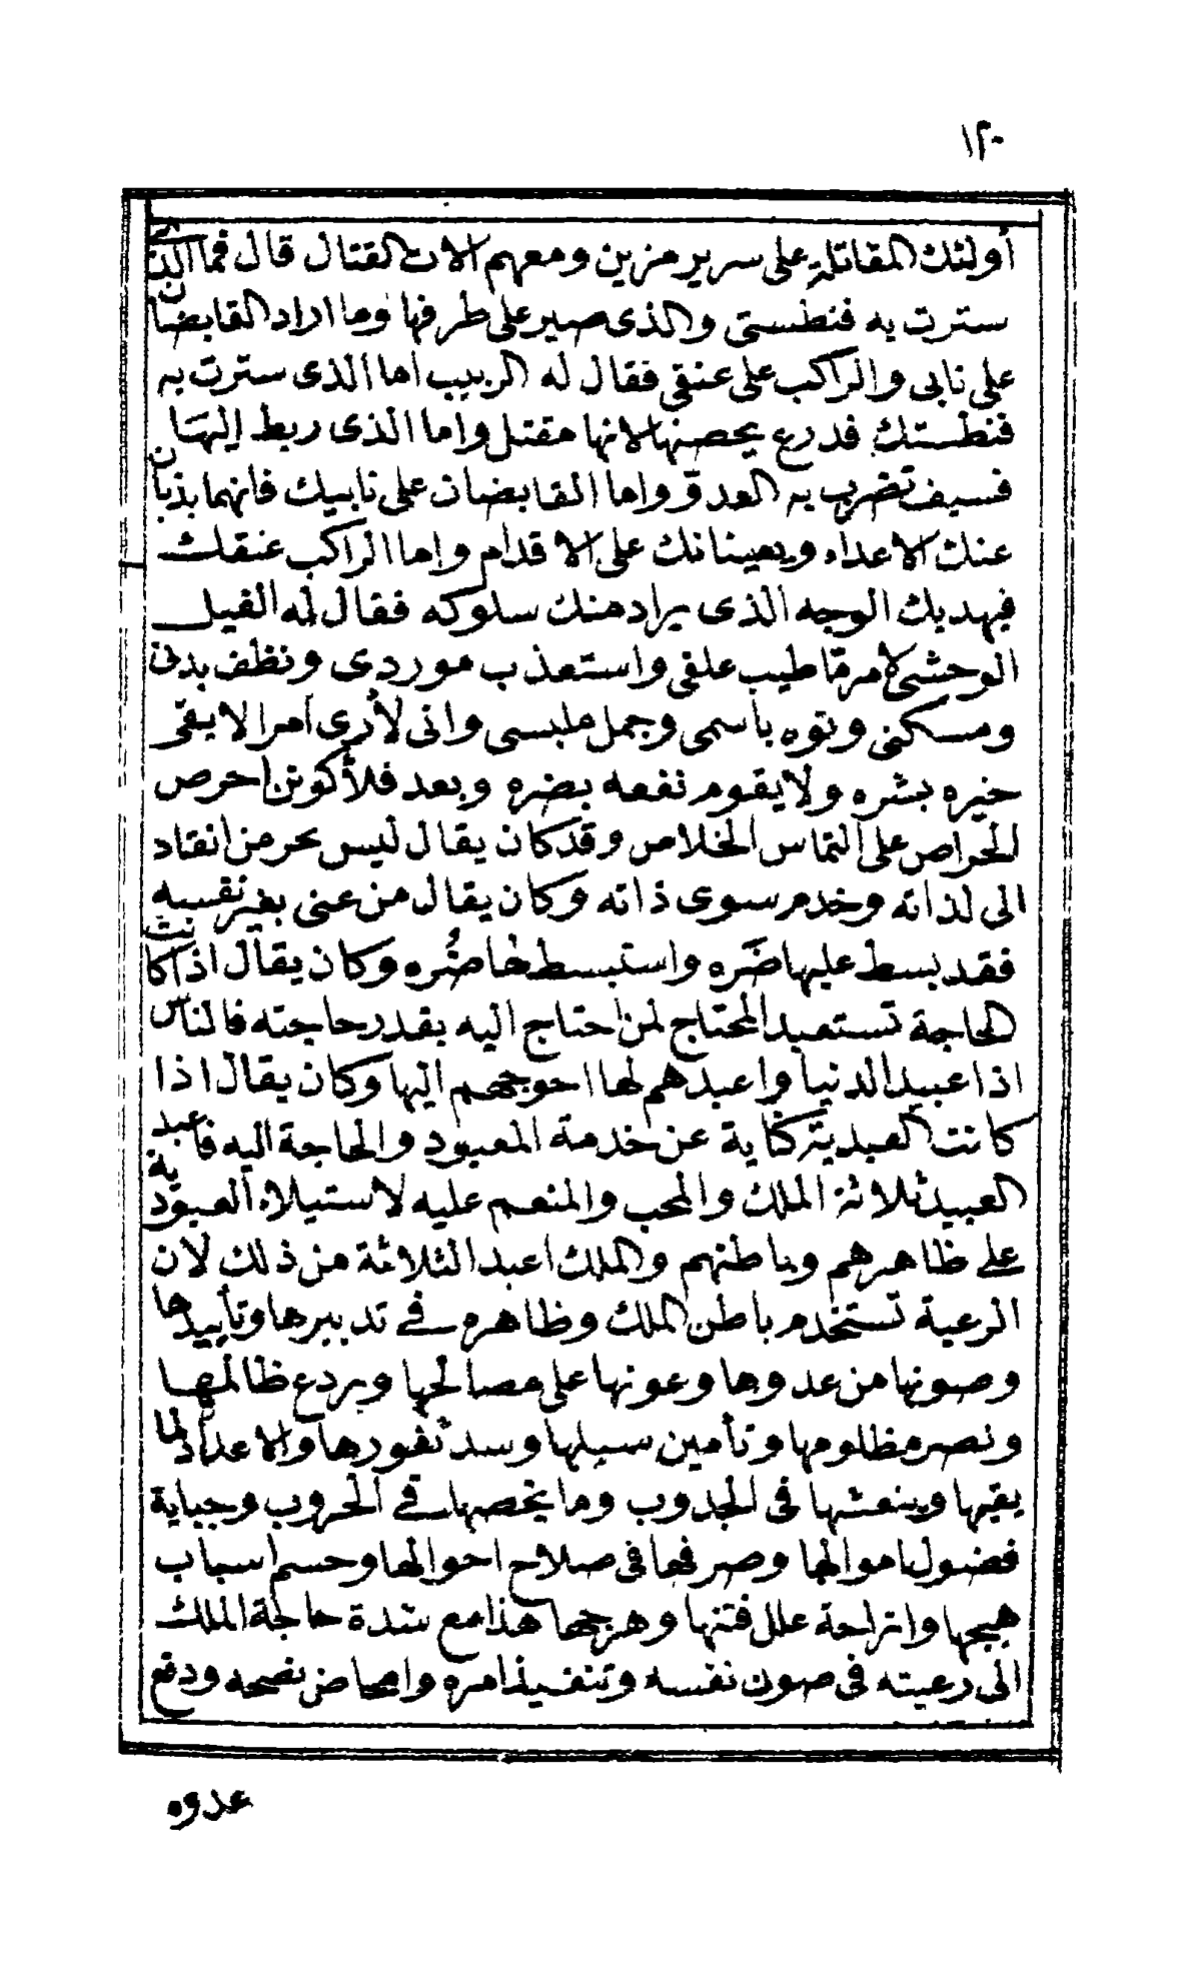 ١٢٠
أولئك المقاتلة على سرير مزين ومعهم الات القتال قال فما الذى
سترت به فنطستى والذى صير على طرفها وما اراد القابضان
على نابى والراكب على عنقى فقال له الربيب اما الذى سترت به
فنطستك فدرع يحصنها لانها مقتل واما الذى ربط إليها
فسيف تضرب به العدو واما القابضان على نابيك فانهما يذبان
عنك الاعداء ويعينانك على الاقدام واما الراكب عنقك
فيهديك الوجه الذى يراد منك سلوكه فقال له الفيل
الوحشى لأمر ما طيب علفى واستعذب موردى ونظف بدنى
ومسكنى ونوه باسمى وجمل ملبسى وانى لأرى أمرا لا يفى
خيره بشره ولا يقوم نفعه بضره وبعد فلأكونن احرص
الحراص على التماس الخلاص وقد كان يقال ليس بحر من انقاد
الى لذاته وخدم سوى ذاته وكان يقال من عنى بغير نفسه
فقد بسط عليها ضره واستبسط خاضره وكان يقال اذا كانت
الحاجة تستعبد المحتاج لمن احتاج اليه بقدر حاجته فالناس
اذا عبيد الدنيا واعبدهم لها احوجهم اليها وكان يقال اذا
كانت العبدية كناية عن خدمة المعبود والحاجة اليه فاعبد
العبيد ثلاثة الملك والمحب والمنعم عليه لاستيلاء العبودية
على ظاهرهم وباطنهم والملك اعبد الثلاثة من ذلك لأن
الرعية تستخدم باطن الملك وظاهره فى تدبيرها وتأييدها
وصونها من عدوها وعونها على مصالحها وبردع ظالمها
ونصر مظلومها وتأمين سبلها وسد ثغورها والاعداد لما
يقيها وينعشها فى الجدوب وما يحصنها فى الحروب وجباية
فضول اموالها وصرفها فى صلاح احوالها وحسم اسباب
هيجها وازاحة علل فتنها وهرجها هذا مع شدة حاجة الملك
الى رعيته فى صون نفسه وتنفيذ امره وامحاض نصحه ودفع
عدوه